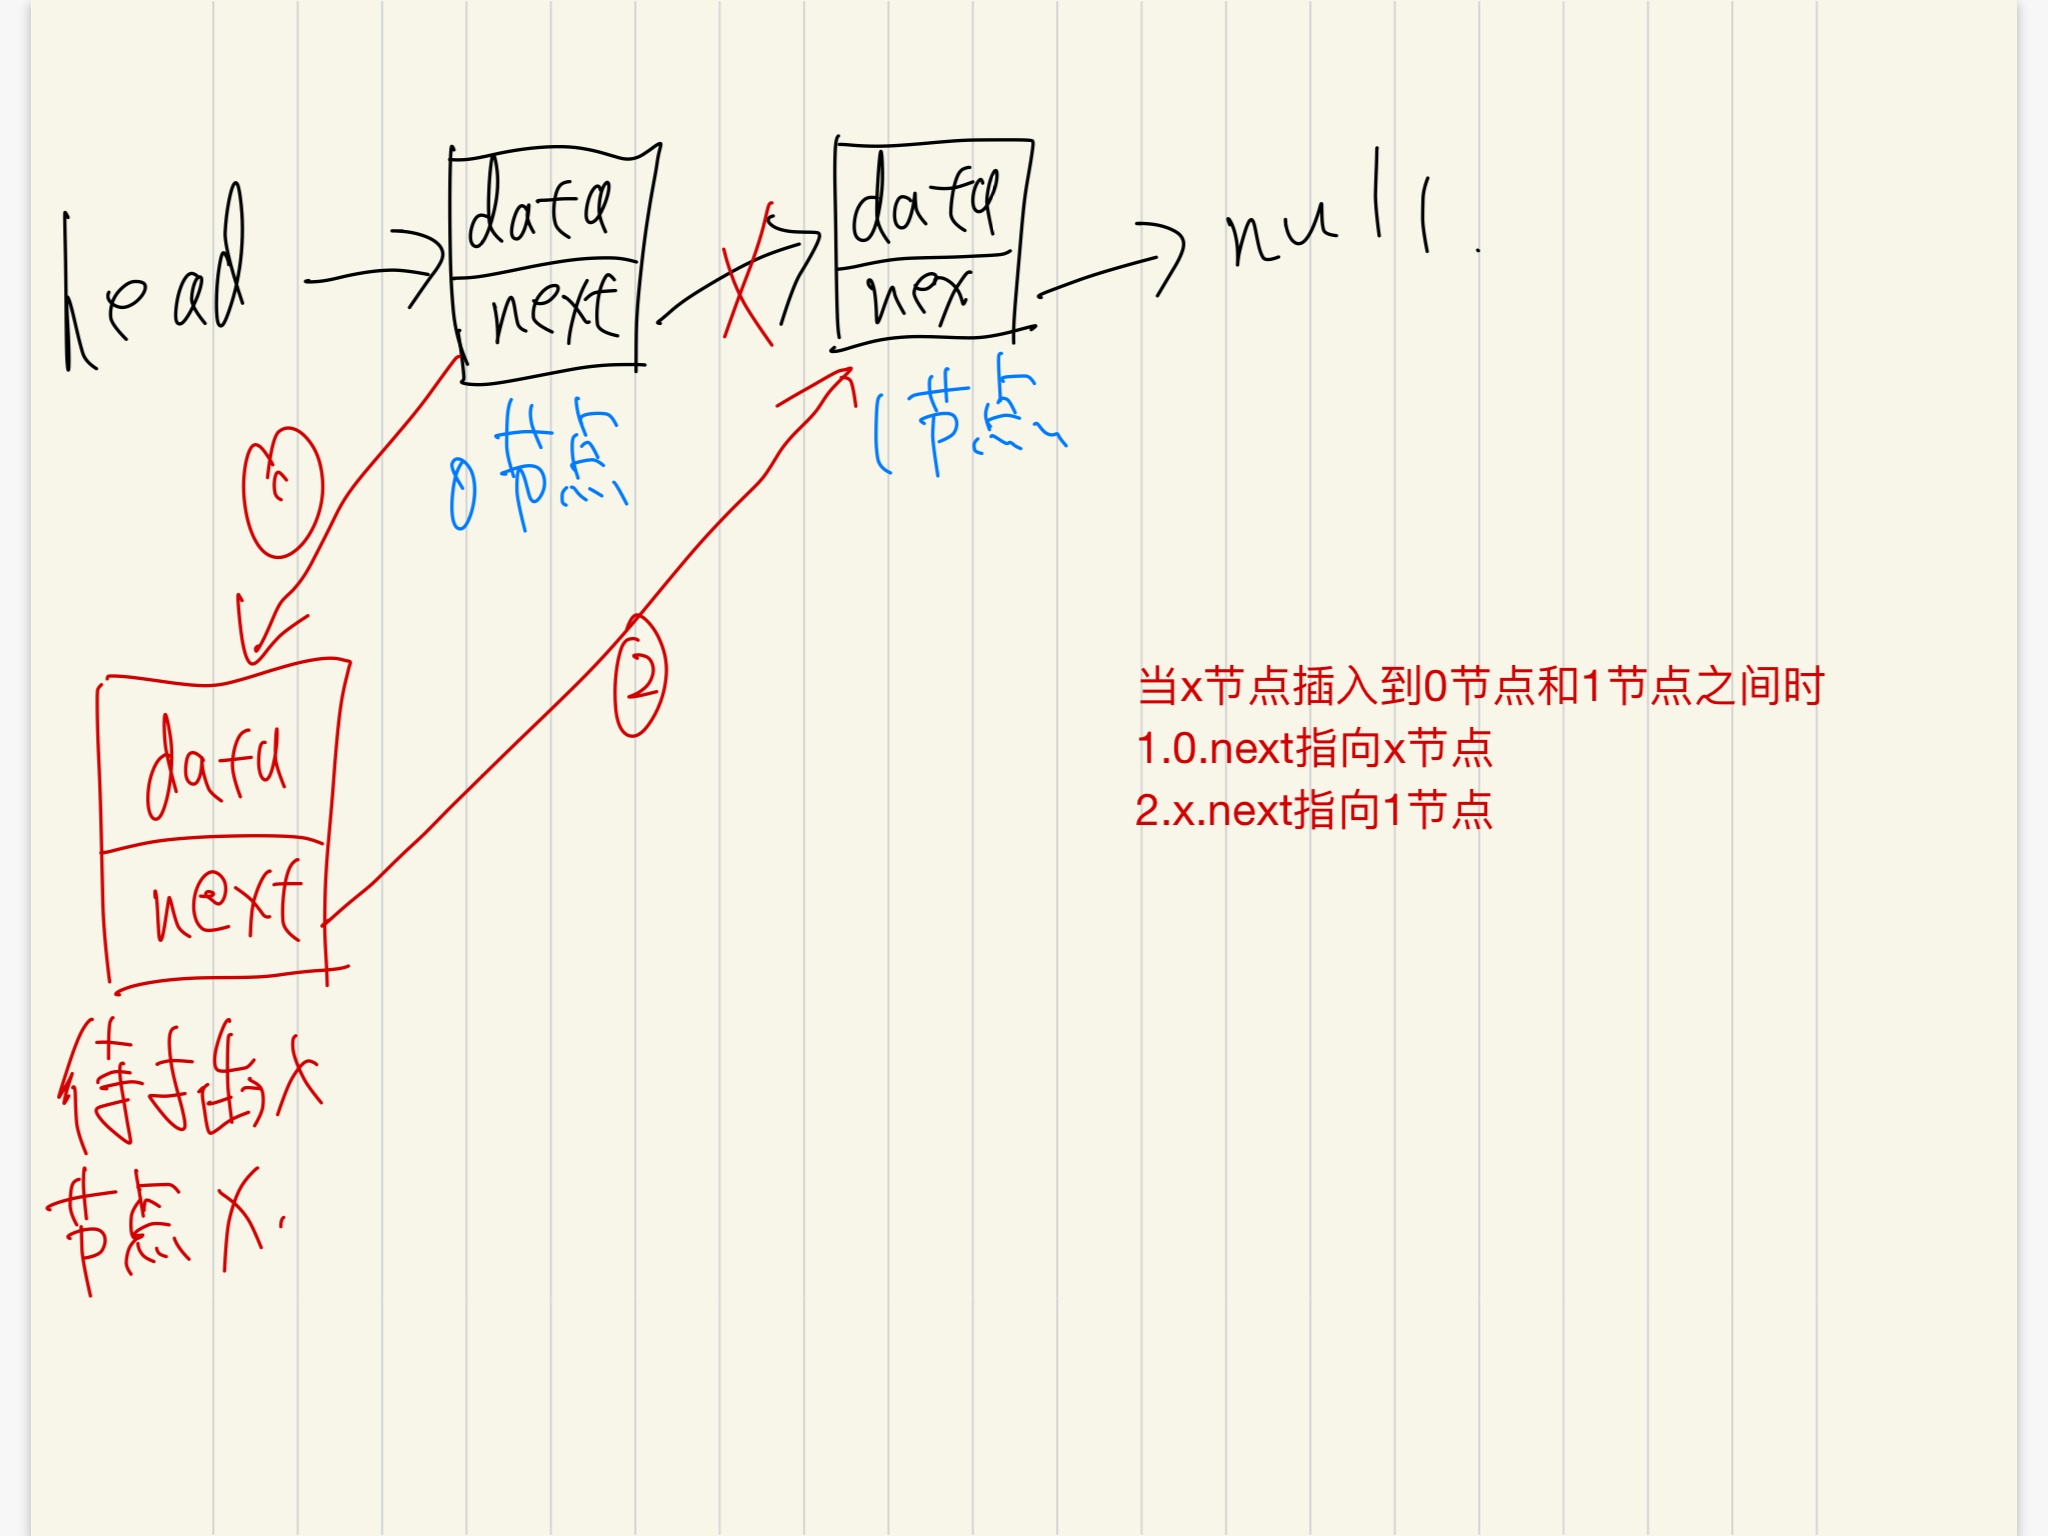 head
data
next
data
nex
null.
0节点
1节点
2
data
next
当x节点插入到0节点和1节点之间时
1.0.next指向x节点
2.x.next指向1节点
待插x
节点 X.